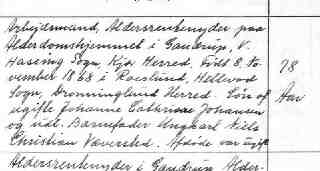 Arbejdsmand, Aldersrentenyder paa
Alderdomshjemmet i Gandrup, V.
Hassing Sogn, Kjær Herred, født 8. No-
vember 1868 i Hellevad
Sogn, Dronninglund Herred. Søn af
ugifte Johanne Cathrine Johansen
og udl. Barnefader Ungkarl Niels
Christian Væversted. Afdøde var ugift
78
Aar
Aldersrentenyder i Gandrup Alder-